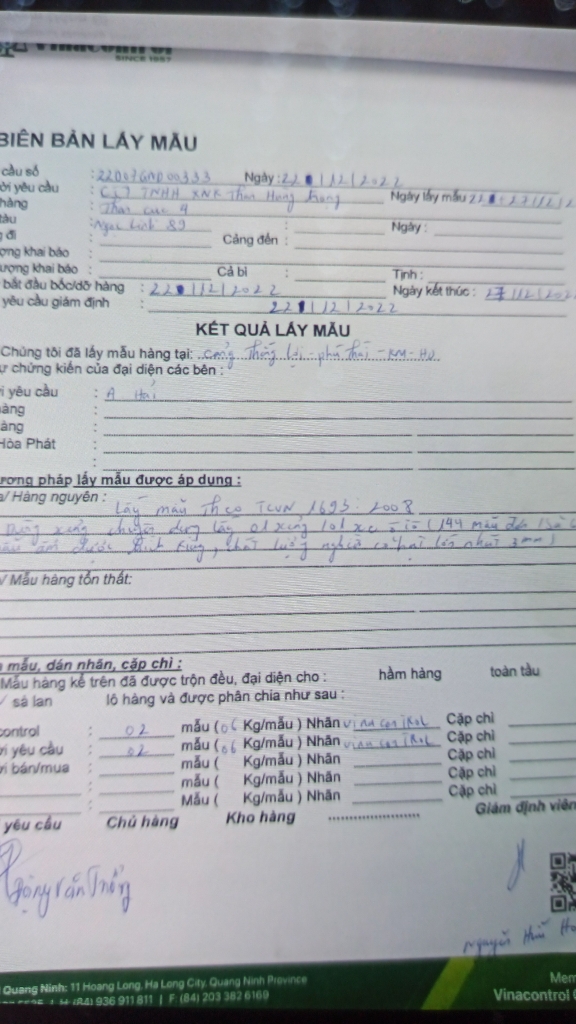 Vinacontrol
SINCE 1957
BIÊN BẢN LẤY MẪU
cầu số : 22007GNP00333 Ngày : 22/12/2022
ời yêu cầu : CTT TNHH XNK Than Hùng Ngày lấy mẫu 22 - 27/12/2
hàng : Than cục 4
tàu : Ngọc Linh 89 Ngày :
g đi Cảng đến :
ợng khai báo :
ượng khai báo : Cả bì : Tịnh :
bắt đầu bốc/dỡ hàng : 22/12/2022 Ngày kết thúc : 27/12/202
yêu cầu giám định : 22/12/2022
KẾT QUẢ LẤY MẪU
Chúng tôi đã lấy mẫu hàng tại: cảng Thắng Lợi - phú Thái - KM - HD
ự chứng kiến của đại diện các bên :
i yêu cầu : A Hải
hàng :
àng :
Hòa Phát :
:
ương pháp lấy mẫu được áp dụng :
a/ Hàng nguyên : Lấy mẫu Theo TCVN 1693 : 2008
Dùng xẻng chuyên dụng lấy 01 xẻng 101 xe (144 mẫu
mẫu được chất lượng nghiền cỡ hạt lớn nhất 3mm)
/ Mẫu hàng tổn thất:
mẫu, dán nhãn, cặp chì :
Mẫu hàng kể trên đã được trộn đều, đại diện cho : hầm hàng toàn tàu
/ sà lan lô hàng và được phân chia như sau :
control : 02 mẫu (06 Kg/mẫu ) Nhãn vinacontrol Cặp chì
ời yêu cầu : 02 mẫu (06 Kg/mẫu ) Nhãn vinacontrol Cặp chì
ời bán/mua : mẫu ( Kg/mẫu ) Nhãn Cặp chì
: mẫu ( Kg/mẫu ) Nhãn Cặp chì
: Mẫu ( Kg/mẫu ) Nhãn Cặp chì
yêu cầu Chủ hàng Kho hàng .................... Giám định viên
Văn Thống
Nguyễn Hữu
Quang Ninh: 11 Hoang Long, Ha Long City, Quang Ninh Province
M (84) 936 911 811 | F (84) 203 382 6169
Mem
Vinacontrol